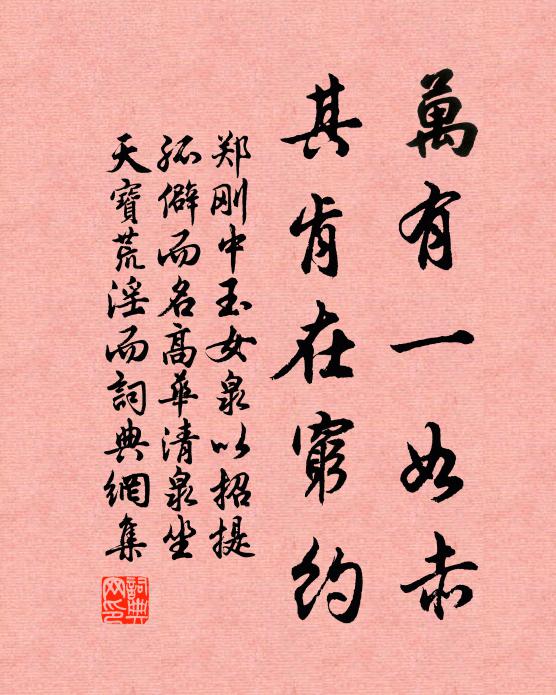 萬有一如赤
其肯在窮約
郑刚中玉女泉以招提
孤僻而名高華清泉坐
天寶荒淫而詞典網集
詞典網印